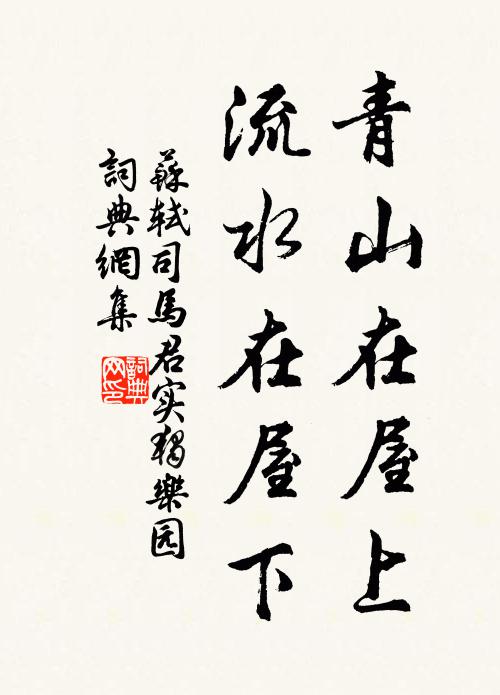 青山在屋上
流水在屋下
蘇軾司馬君实獨樂园
詞典網集
詞典网印